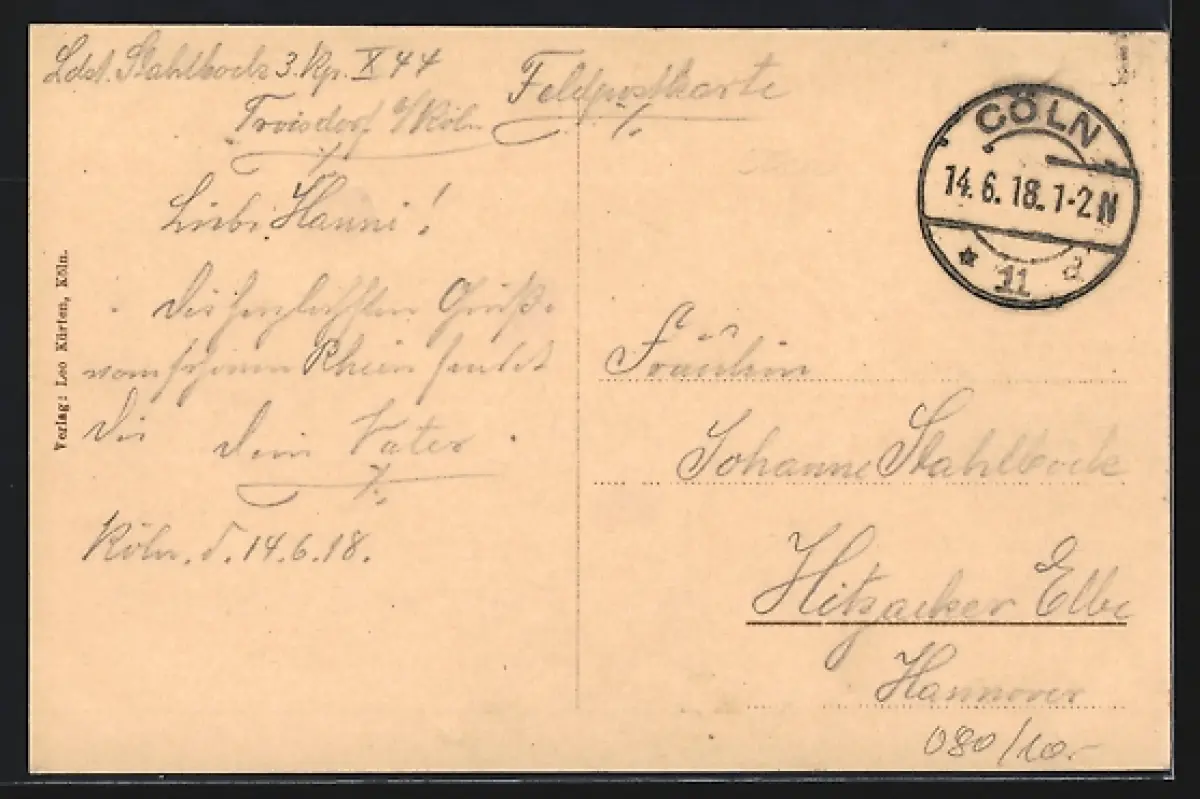 Ldst. Stahlbock 3. Kp. X 44
Troisdorf b/Köln
Feldpostkarte
Liebe Hanni!
Die herzlichsten Grüße
vom schönen Rhein sendet
Dir Dein Vater.
Köln. d. 14.6.18.
Verlag: Leo Kürten, Köln.
CÖLN 1
14.6.18.1-2N
* 11 d
Fräulein
Johanne Stahlbock
Hitzacker Elbe
Hannover
080/10.-